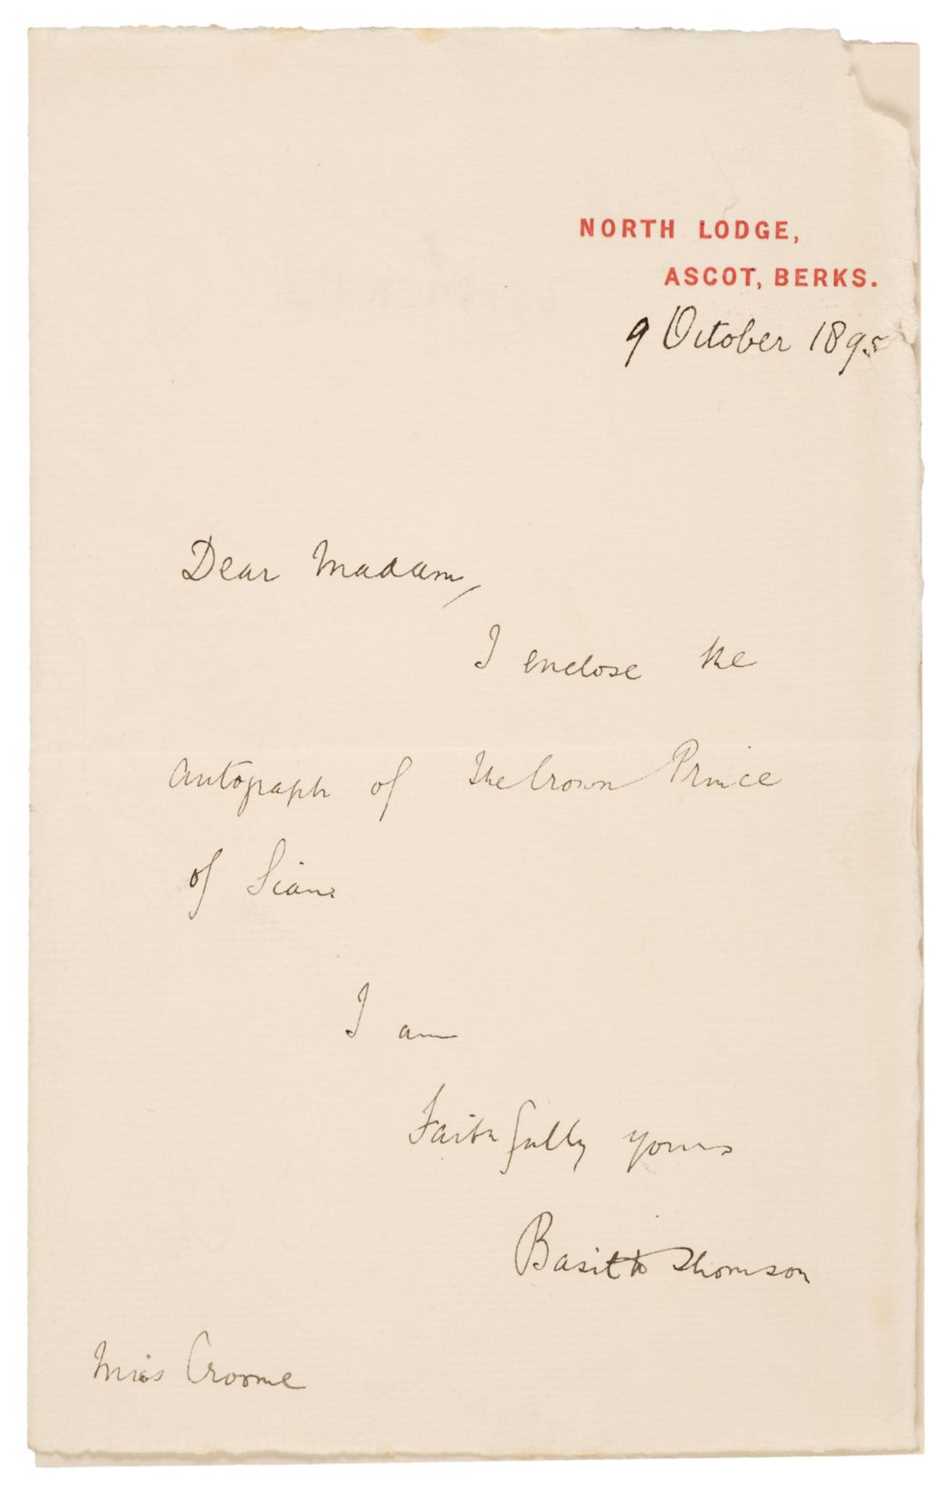 NORTH LODGE,
ASCOT, BERKS.
9 October 1895
Dear Madam,
I enclose the
autograph of the Crown Prince
of Siam
I am
Faithfully yours
Basil H Thomson
Miss Croome